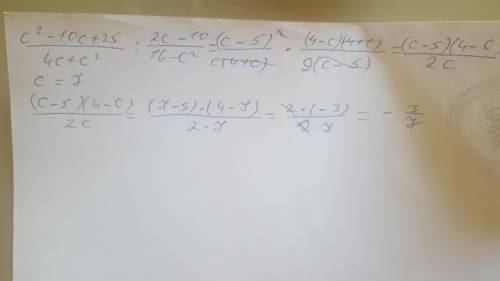 c² - 10c + 25 / 4c + c² : 2c - 10 / 16 - c² = (c - 5)² / c(4+c) · (4-c)(4+c) / 2(c - 5) = (c-5)(4-c / 2c
c = 7
(c-5)(4-c) / 2c = (7-5)·(4-7) / 2·7 = 2·(-3) / 2·7 = - 3/7